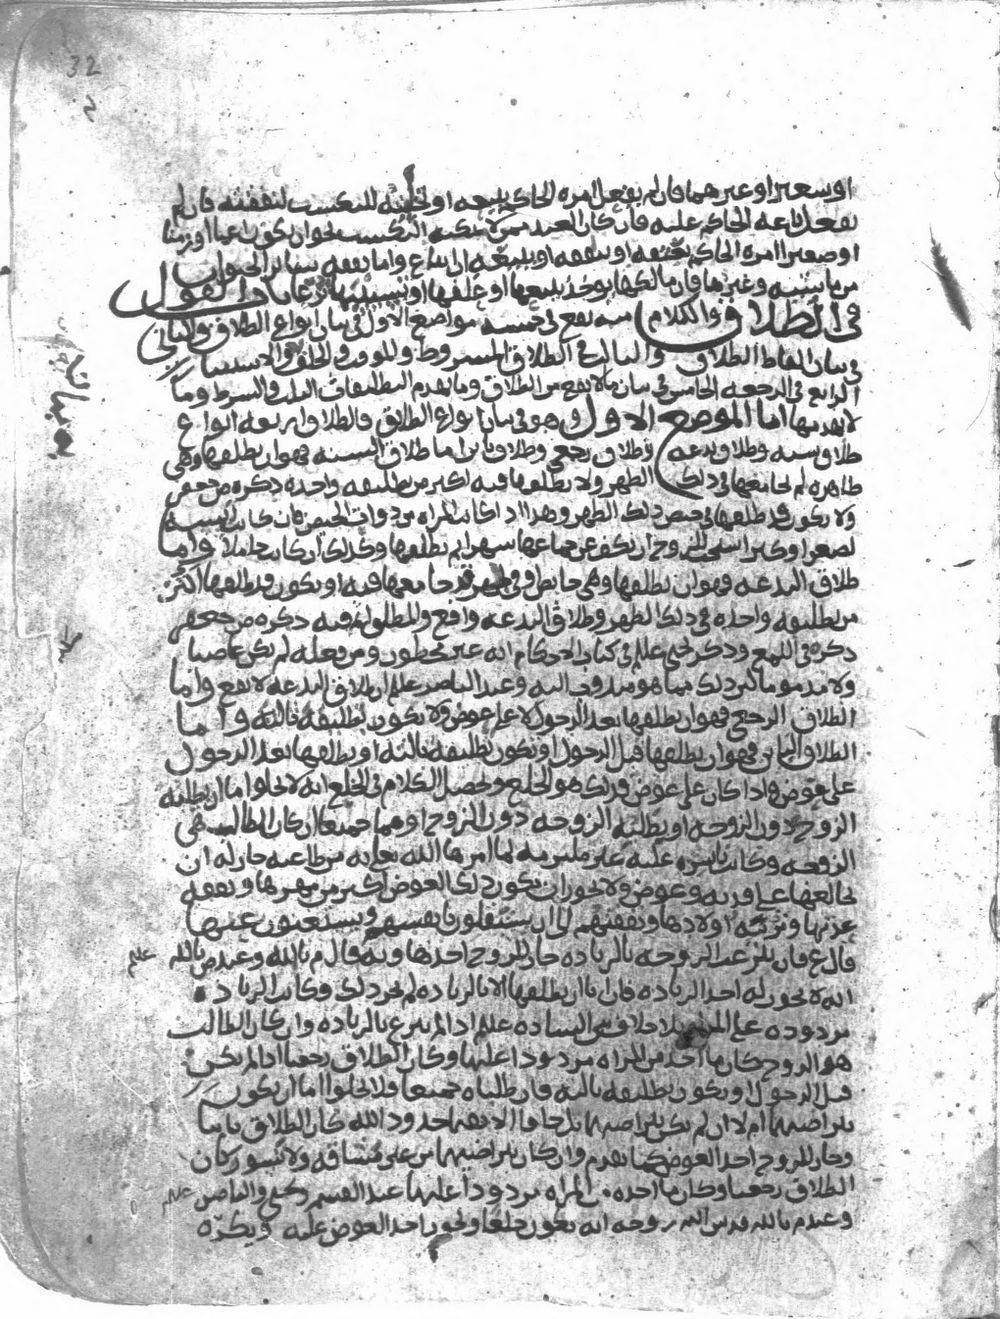 32
او سعير او غيرهما فان لم يفعل امره الحاكم ببيعه او تخليته للتكسب لنفقته فان لم
يفعل باعه الحاكم عليه فان كان العبد ممن لا يمكنه التكسب لحو ان يكون زمنا
او صغيرا امره الحاكم بعتقه او بنفقه او ببيعه ان يباع واما نفقه سائر الحيوان
من ماشيه وغيرها فان مالكها يوخذ ببيعها او علفها او تسييبها ترعا باب القول
في الطلاق والكلام منه يقع في خمسه مواضع الاول في بيان انواع الطلاق والثاني
في بيان الفاظ الطلاق والثالث في الطلاق المشروط والموقت والحلف والاستثنا
الرابع في الرجعه الخامس في بيان ما لا يقع من الطلاق وما يهدم التطليقات الثلث والشرط وما
لا يهدمها اما الموضع الاول وهو في بيان انواع الطلاق فالطلاق اربعه انواع
طلاق سنه وطلاق بدعه وطلاق رجعي وطلاق باين اما طلاق السنه فهو ان يطلقها وهي
طاهره لم يجامعها في ذلك الطهر ولا يطلقها فيه اكثر من تطليقه واحده ذكره ص جعفر
ولا يكون قد طلقها في حيض ذلك الطهر وهذا اذا كانت المراه من ذوات الحيض فان كانت آيسه
لصغر او كبر استحب للزوج ان يكف عن جماعها شهرا ثم يطلقها وكذلك ان كانت حاملا واما
طلاق البدعه فهو ان يطلقها وهي حائض او في طهر قد جامعها فيه او يكون قد طلقها اكثر
من تطليقه واحده في ذلك الطهر وطلاق البدعه واقع والمطلق اثم فيه ذكره ص جعفر
ذكره في اللمع وذكر يحيى علم في كتاب الاحكام انه غير محظور ومن فعله لم يكن عاصيا
ولا مذموما لان ذلك مما هو مندوب اليه وعند الناصر علم ان طلاق البدعه لا يقع واما
الطلاق الرجعي فهو ان يطلقها بعد الدخول لا على عوض ولا يكون تطليقه ثالثه واما
الطلاق الباين فهو ان يطلقها قبل الدخول او تكون تطليقه ثالثه او يطلقها بعد الدخول
على عوض واذا كان على عوض فذلك هو الخلع وتحصيل الكلام في الخلع انه لا يخلوا اما ان يطلبه
الزوج دون الزوجه او يطلبه الزوجه دون الزوج او هما جميعا فان كان الطالب هي
الزوجه وكانت ناشزه عليه غير ملتزمه لما امرها الله تعالى به من طاعته جاز له ان
يخالعها على فديه وعوض ولا يجوز ان يكون ذلك العوض اكثر من مهرها ونفقه
عدتها وتربيه اولادها ونفقتهم الى ان يستقلون بانفسهم ويستغنون عنها
قال ع فان تبرعت الزوجه بالزياده جاز للزوج اخذها وبه قال م بالله وعند ص بالله علم
انه لا يجوز له اخذ الزياده فان ابا ان يطلقها الا بالزياده لم يجز ذلك وكانت الزياده
مردوده على المراه بلا خلاف بين الساده علم اذا لم تبرع بالزياده وان كان الطالب
هو الزوج كان ما اخذ من المراه مردودا عليها وكان الطلاق رجعيا اذا لم يكن
قبل الدخول او يكون تطليقه ثالثه فان طلباه جميعا فلا يخلوا اما ان يكون
بتراضيهما ام لا ان لم يكن بتراضيهما بل خافا الا يقيما حدود الله كان الطلاق باينا
وجاز للزوج اخذ العوض كما تقدم وان كان بتراضيهما من غير مشاقه ولا نشوز كان
الطلاق رجعيا وكان ما اخذه من المراه مردودا عليها عند القسم ويحيى والناصر علم
وعند م بالله قدس الله روحه انه يكون خلعا ويجوز اخذ العوض عليه ويكره